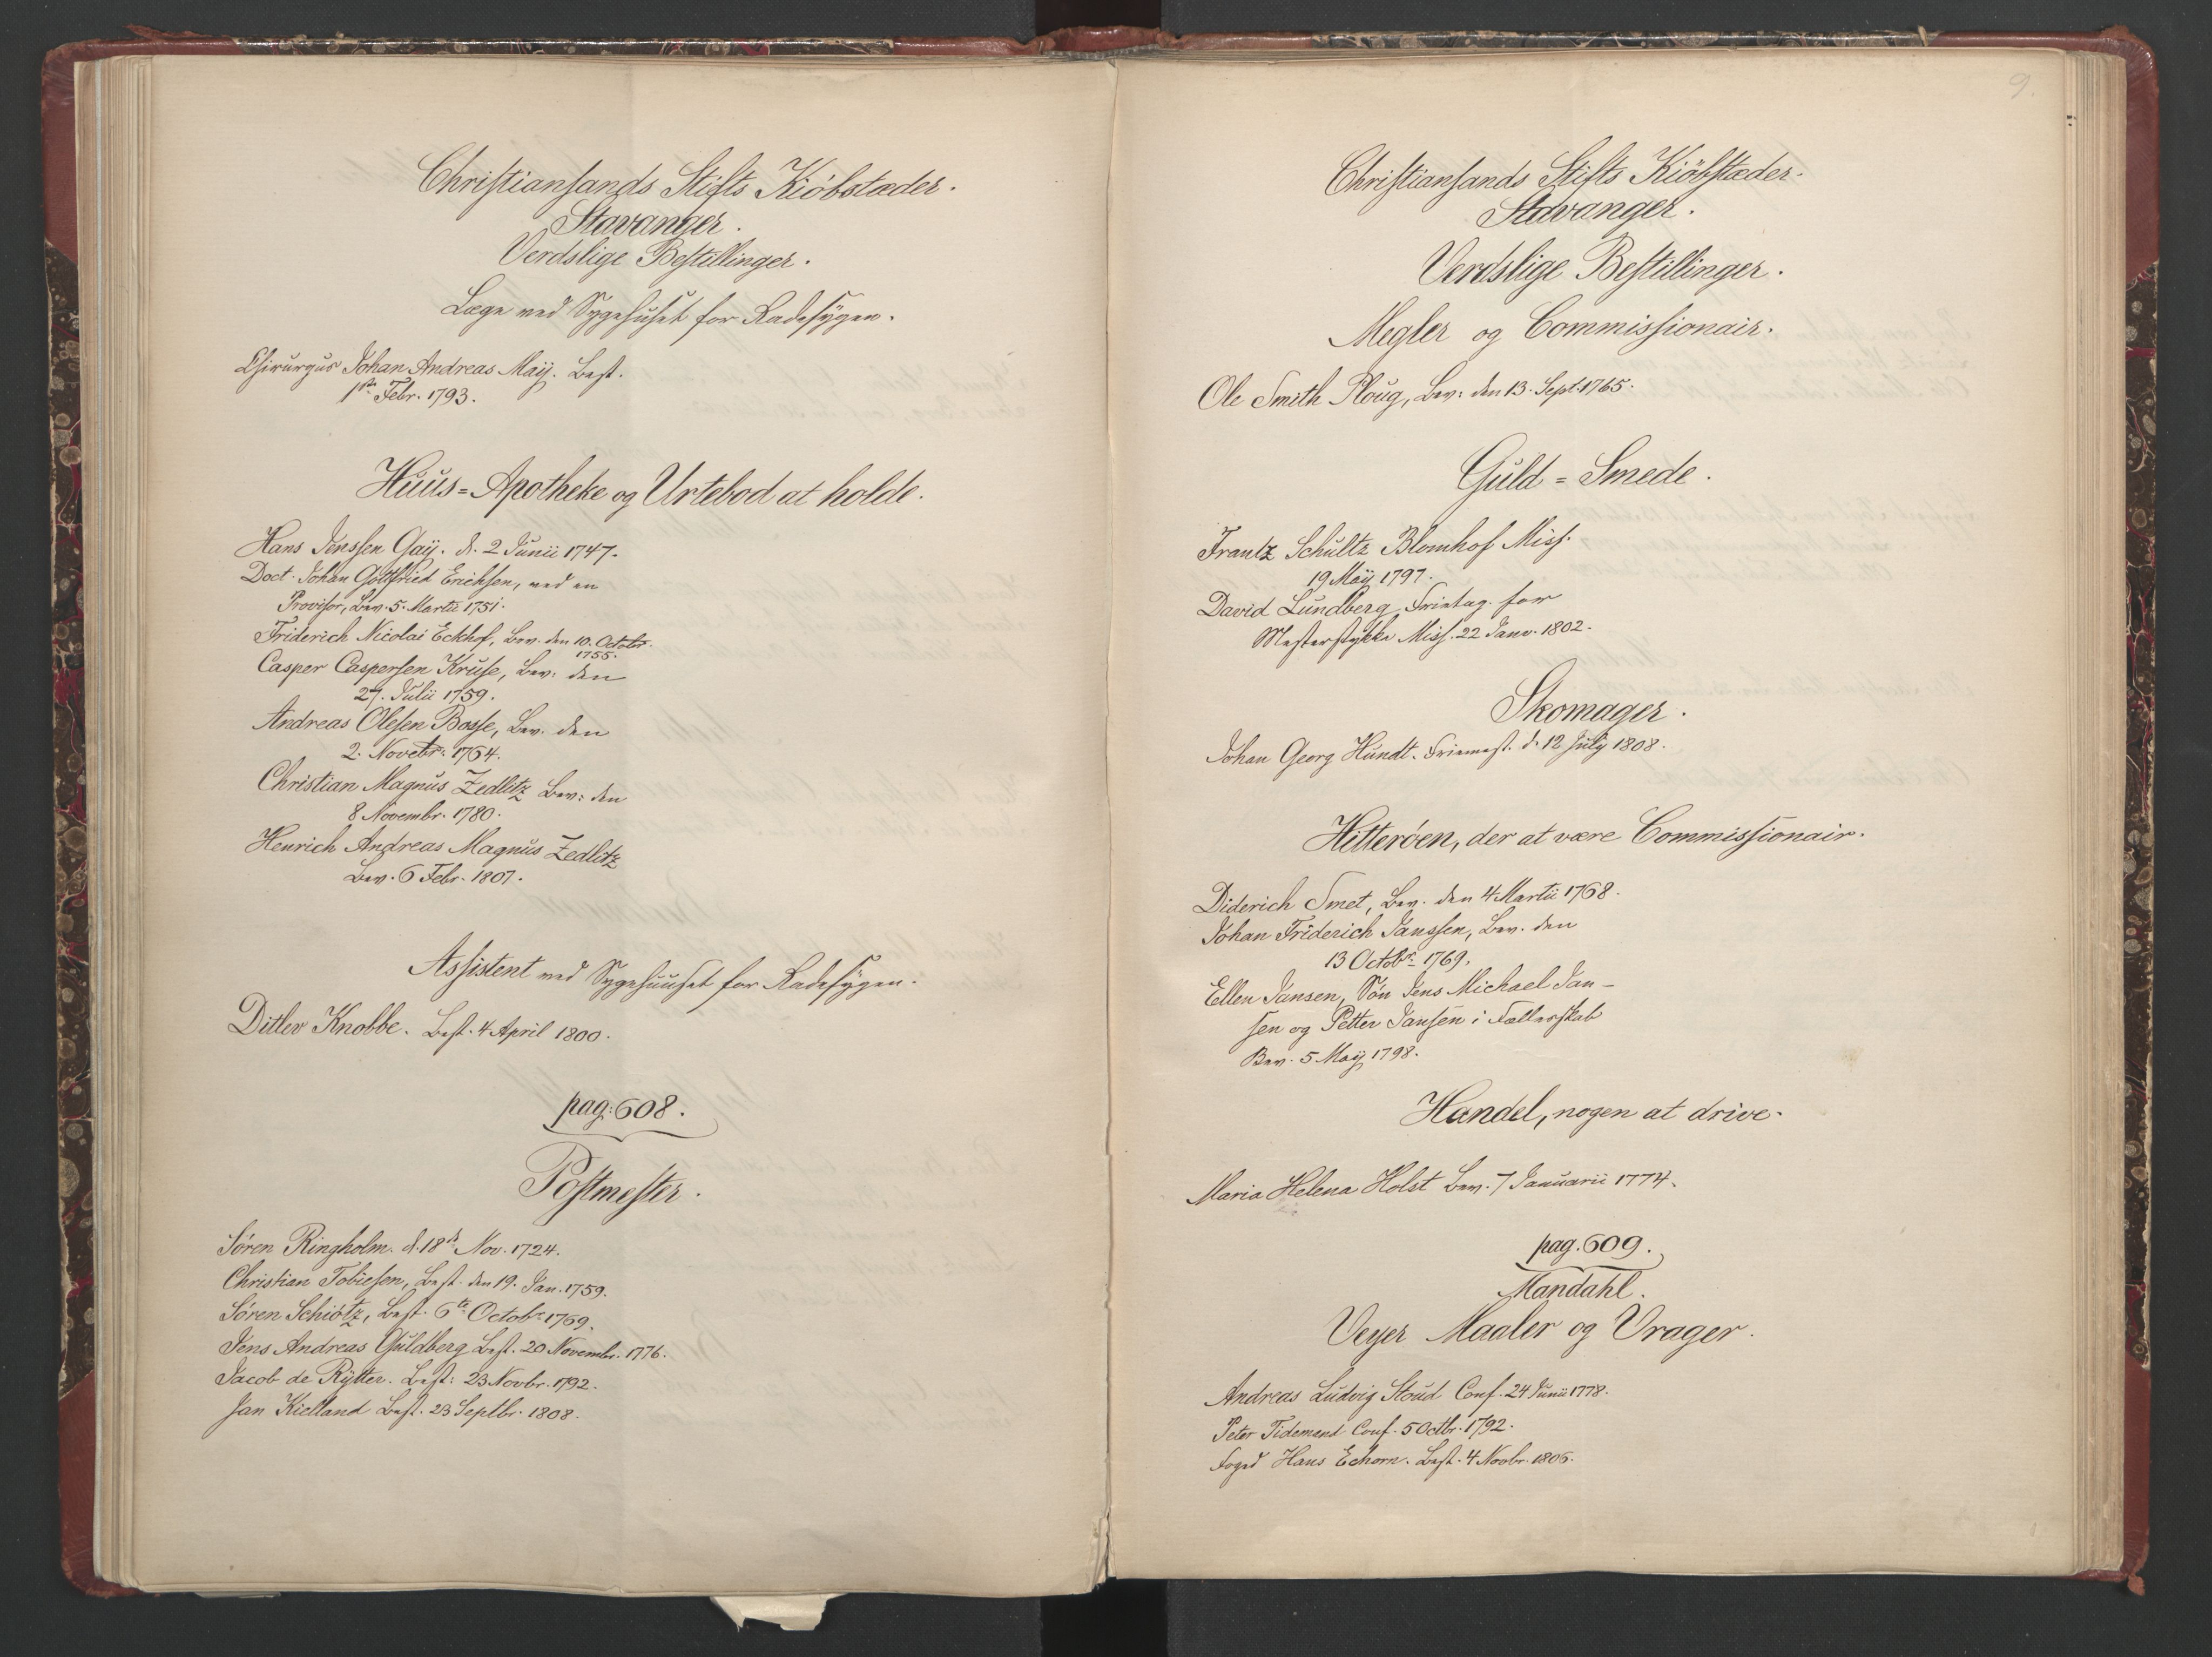 Christiansands Stifts Kiöbstæder.
Stavanger.
Verdslige Bestillinger.
Læge ved Sygehuset for Radesÿgen.
Chirurgus Johan Andreas Maÿ. Best.
1ste Febr. 1793.
Huus=Apotheke og Urtebod at holde.
Hans Jenssen Gaÿ. d. 2 Junii 1747.
Doct. Johan Gottfried Erichsen, ved en
Provisor, Bev. 5. Martii 1751.
Friderich Nicolai Eckhof, Bev. den 10. Octobr.
1755.
Casper Caspersen Kruse, Bev. den
27. Julii 1759.
Andreas Olesen Basse, Bev. den
2. Novebr. 1764.
Christian Magnus Zedlitz Bev: den
8 Novembr. 1780.
Henrich Andreas Magnus Zedlitz
Bev. 6 Febr. 1807.
Assistent ved Sygehuuset for Radesÿgen.
Ditlev Knobbe. Best. 4 April 1800.
pag: 608.
Postmester.
Sören Ringholm. d. 18de Nov. 1724.
Christian Tobiesen, Best. den 19. Jan. 1759.
Sören Schiötz, Best. 6te Octobr 1769.
Jens Andreas Guldberg Best. 20 Novembr. 1776.
Jacob de Rÿtter. Best: 23 Novbr. 1792.
Jan Kielland Best. 23 Septbr. 1808.
9.
Christiansands Stifts Kiöbstæder.
Stavanger.
Verdslige Bestillinger.
Megler og Commissionair.
Ole Smith Ploug, Bev: den 13. Sept. 1765.
Guld=Smede.
Frantz Schultz Blomhof Miss.
19 Maÿ 1797.
David Lundberg Fritag. for
Mesterstykke Miss. 22 Janv. 1802.
Skomager.
Johan Georg Hundt. Friemest. d. 12 Julÿ 1808.
Hitteröen, der at være Commissionair.
Diderich Smet, Bev. den 4 Martii 1768.
Johan Friderich Janssen, Bev. den
13 Octobr 1769.
Ellen Jansen, Sön Jens Michael Jan-
sen og Petter Jansen i Fællesskab
Bev. 5 Maÿ 1798.
Handel, nogen at drive.
Maria Helena Holst Bev. 7 Januarii 1774.
pag. 609.
Mandahl.
Veyer Maaler og Vrager.
Andreas Ludvig Stoud Conf. 24 Junii 1778.
Peter Tidemand Conf. 5 Octbr. 1792.
Foged Hans Echorn. Best. 4 Novbr. 1806.